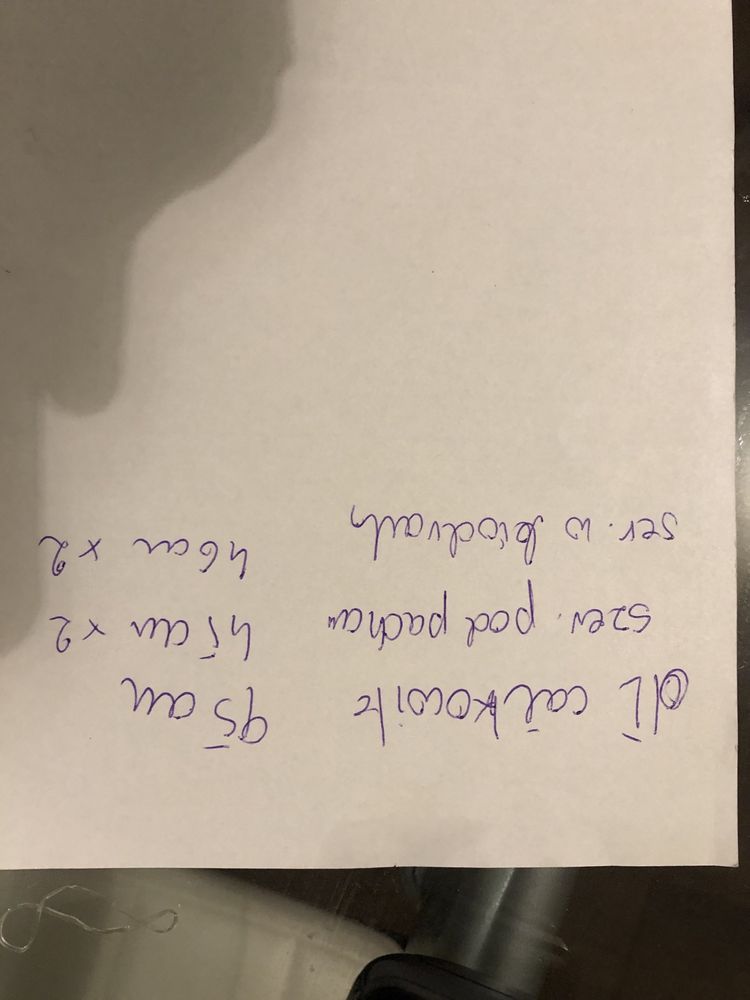 dł całkowita 95 cm
szer. pod pachami 45 cm x 2
szer. w biodrach 46 cm x 2